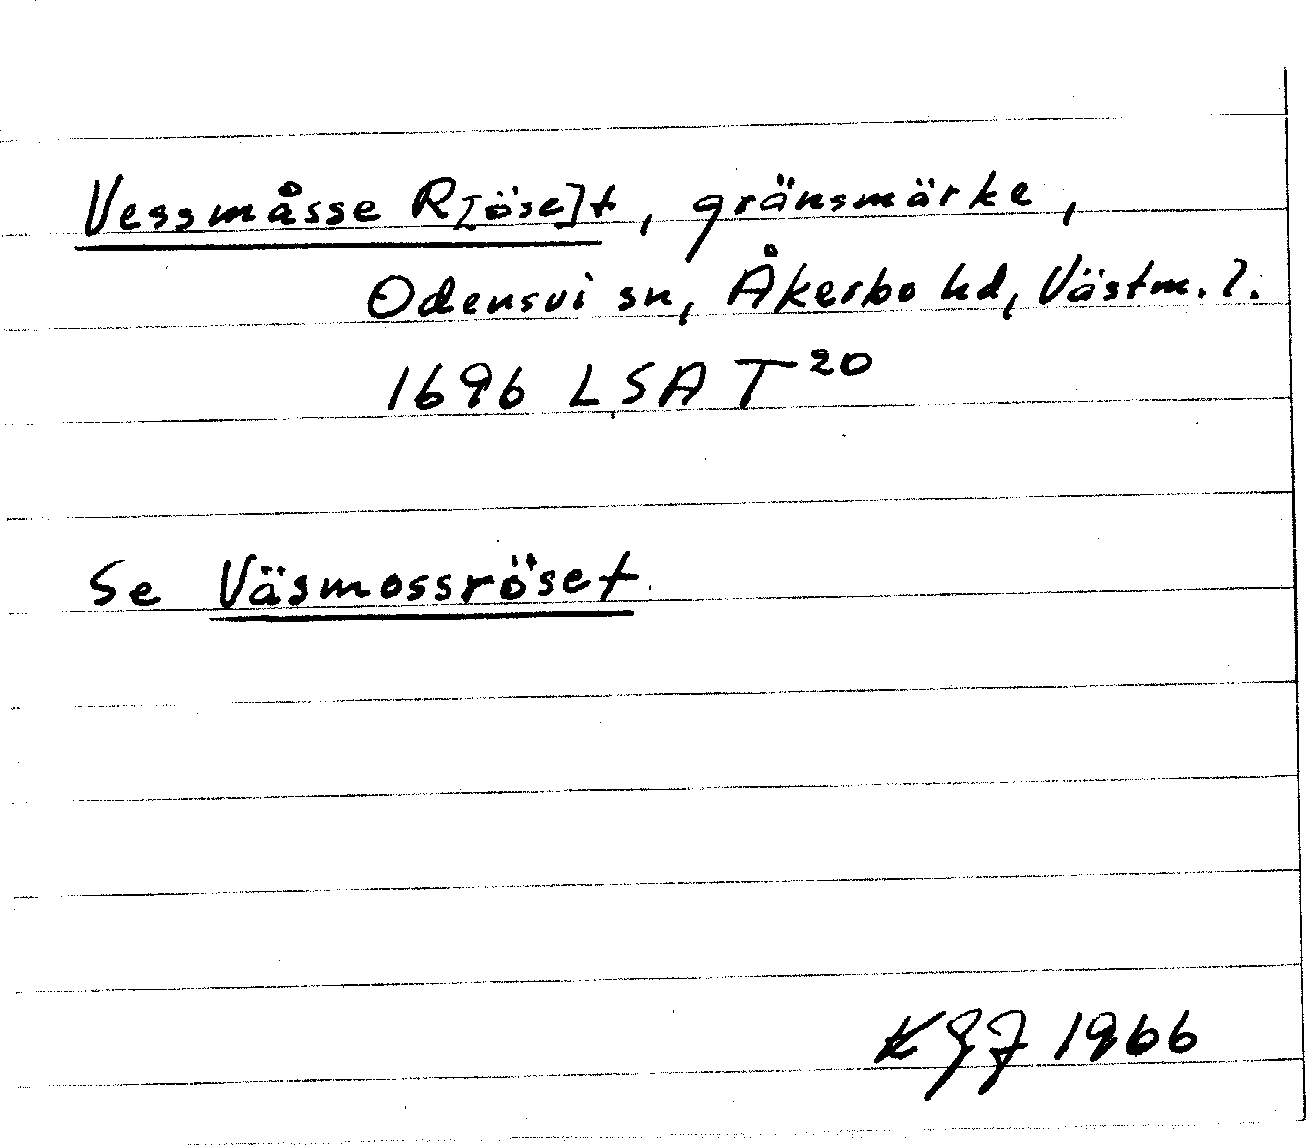 Vessmåsse R[öse]t, gränsmärke,
Odensvi sn, Åkerbo hd, Västm. l.
1696 LSA T²⁰
Se Väsmossröset.
KGJ 1966